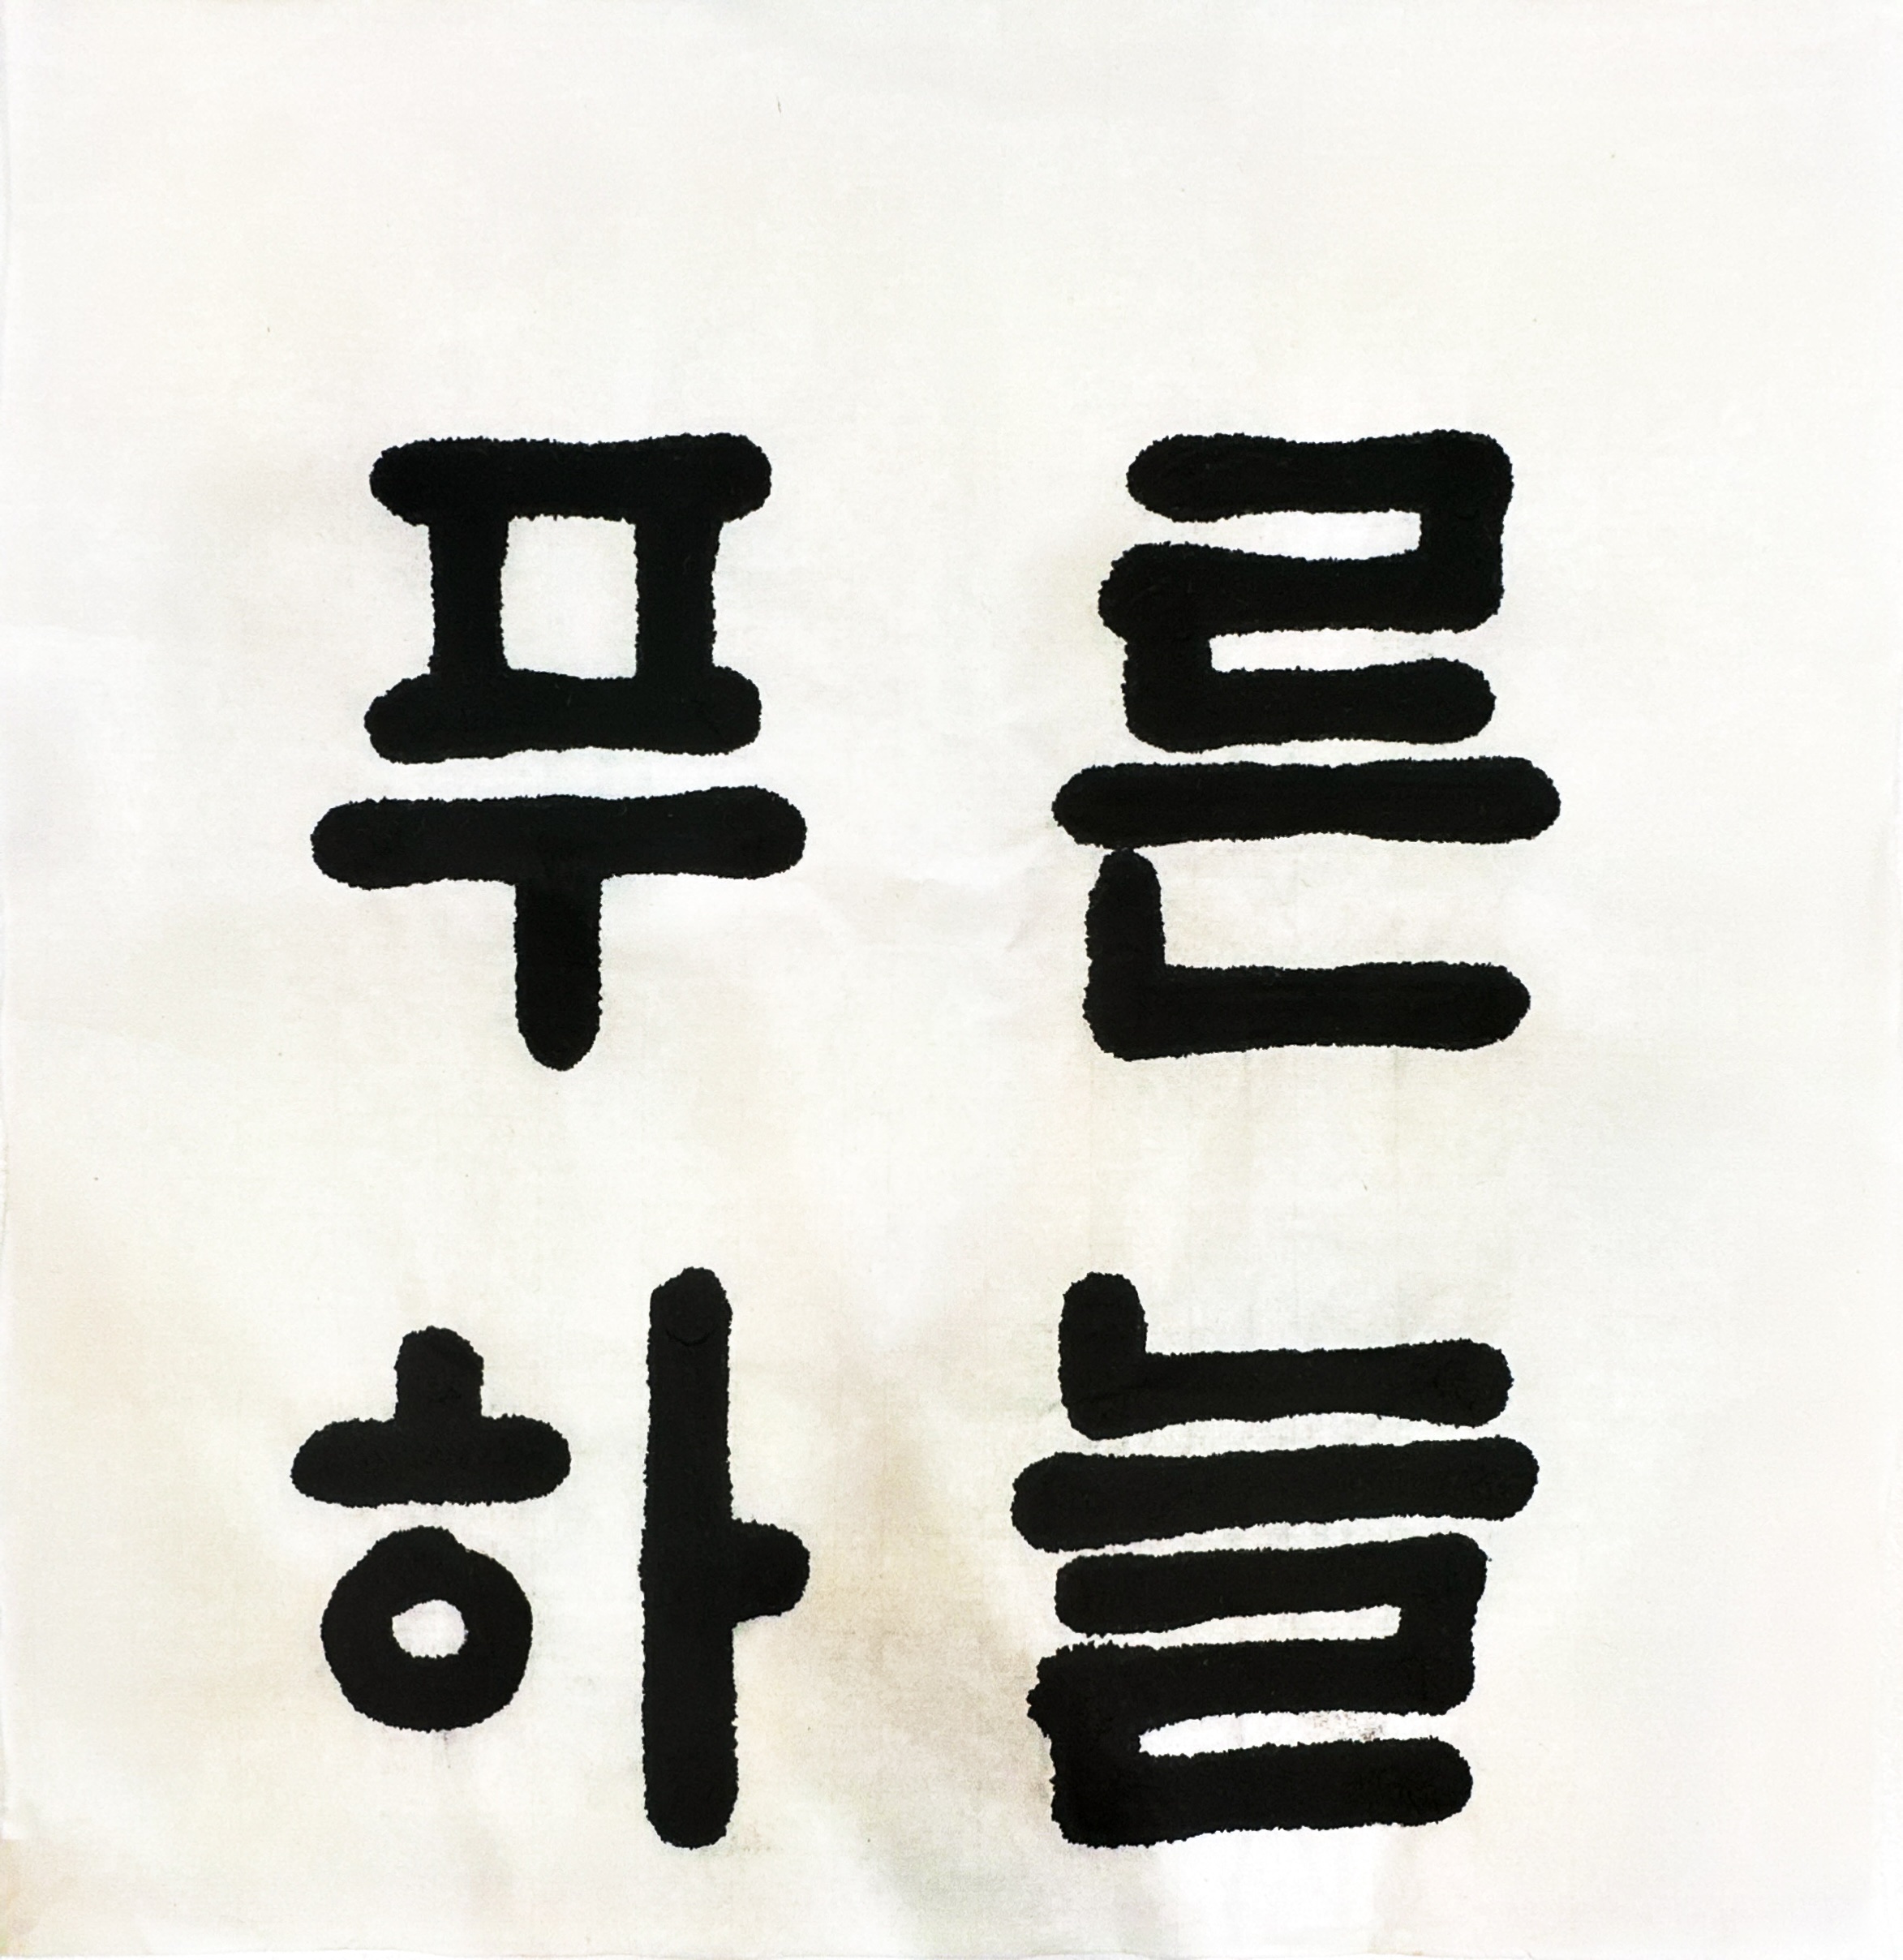 푸른
하늘